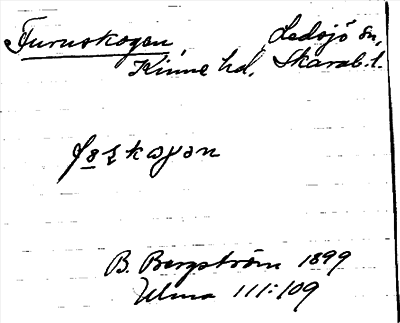 Furuskogen, Ledsjö sn,
Kinne hd, Skarab. l.
B. Bergström 1899
Ulma 111:109